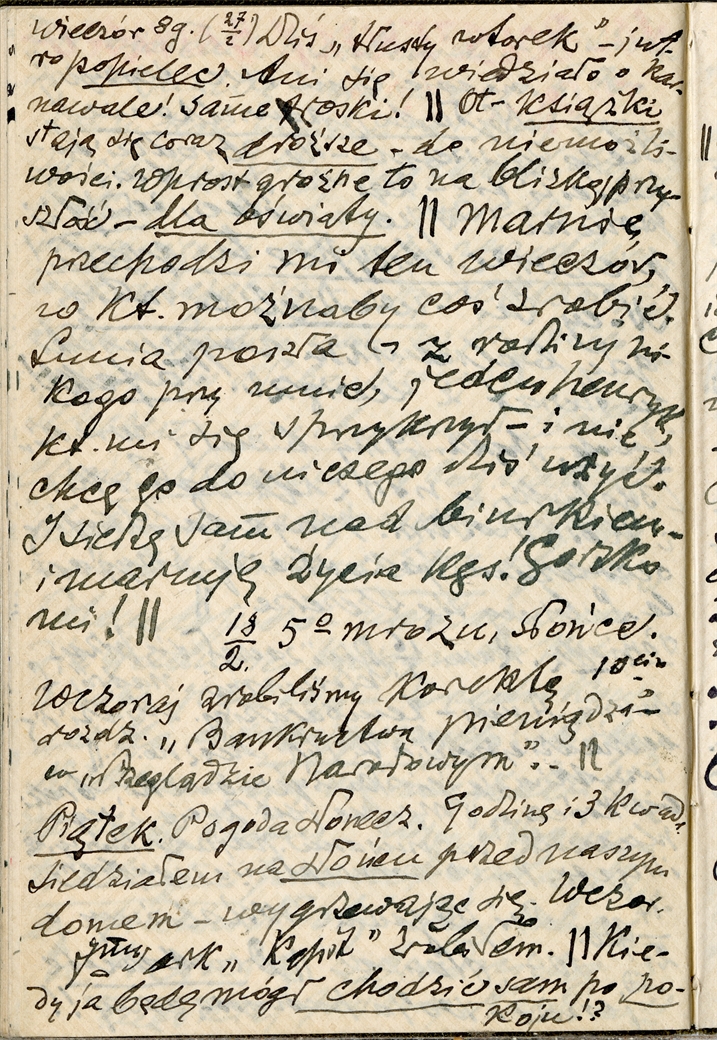 wieczór 8g. (27/2) Dziś „tłusty wtorek" – jut-
ro popielec. Ani się wiedziało o kar-
nawale! Same troski! || Ot – książki
stają się coraz droższe – do niemożli-
wości. Wprost groźne to na blizką przy-
szłość – dla oświaty. || Marnie
przechodzi mi ten wieczór,
w kt. możnaby coś zrobić.
Lunia poszła – z rodziny ni-
kogo przy mnie, jeden henryk,
kt. mi się sprzykrzył – i nie
chcę go do niczego dziś użyć.
I siedzę sam nad biurkiem –
i marnuję życia kęs! Gorzko
mi! ||
18/2. 5º mrozu, słońce.
Wczoraj zrobiliśmy korektę 10ciu
rozdz. „Bankructwa pieniądza"
w „Przeglądzie Narodowym". – ||
Piątek. Pogoda słonecz. Godzinę i 3 kwadr.
siedziałem na słońcu przed naszym
domem – wygrzewając się. Wczor.
ark „Kopít" zrobiłem. || Kie-
dy ja będę mógł chodzić sam po po-
koju!?